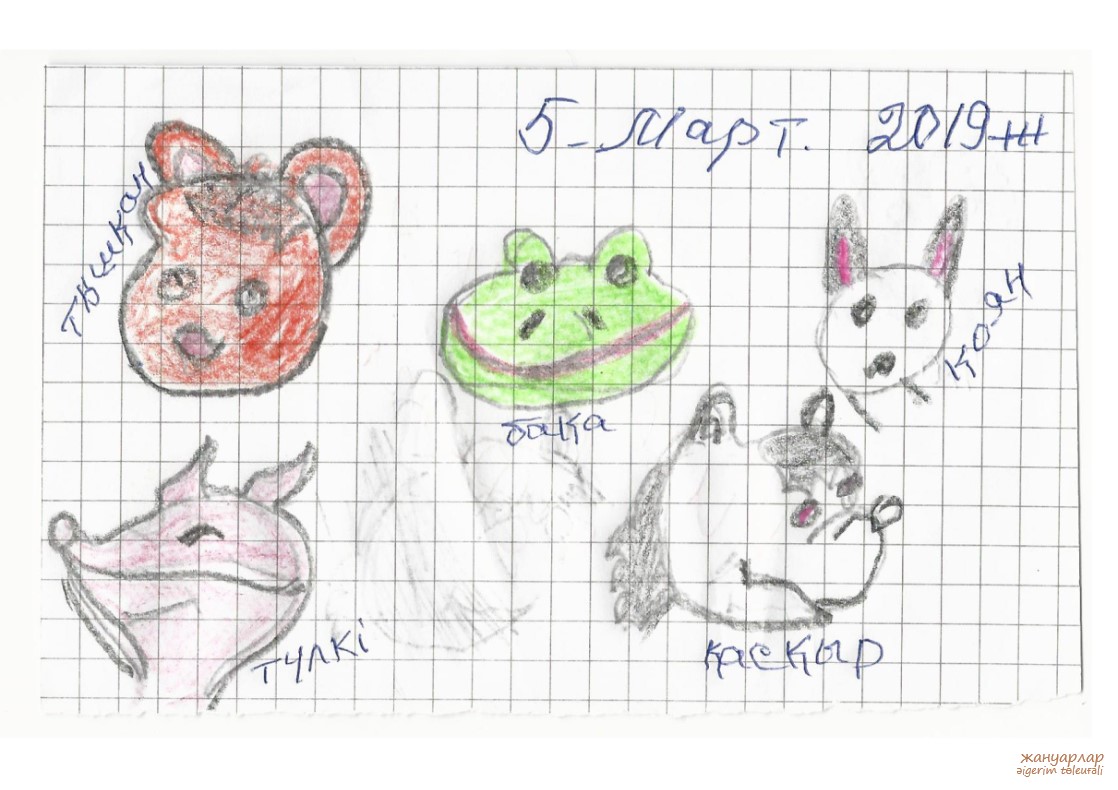 5-Март. 2019ж
тышқан
бақа
қоян
түлкі
қасқыр
жануарлар
əigerim tөleuғali